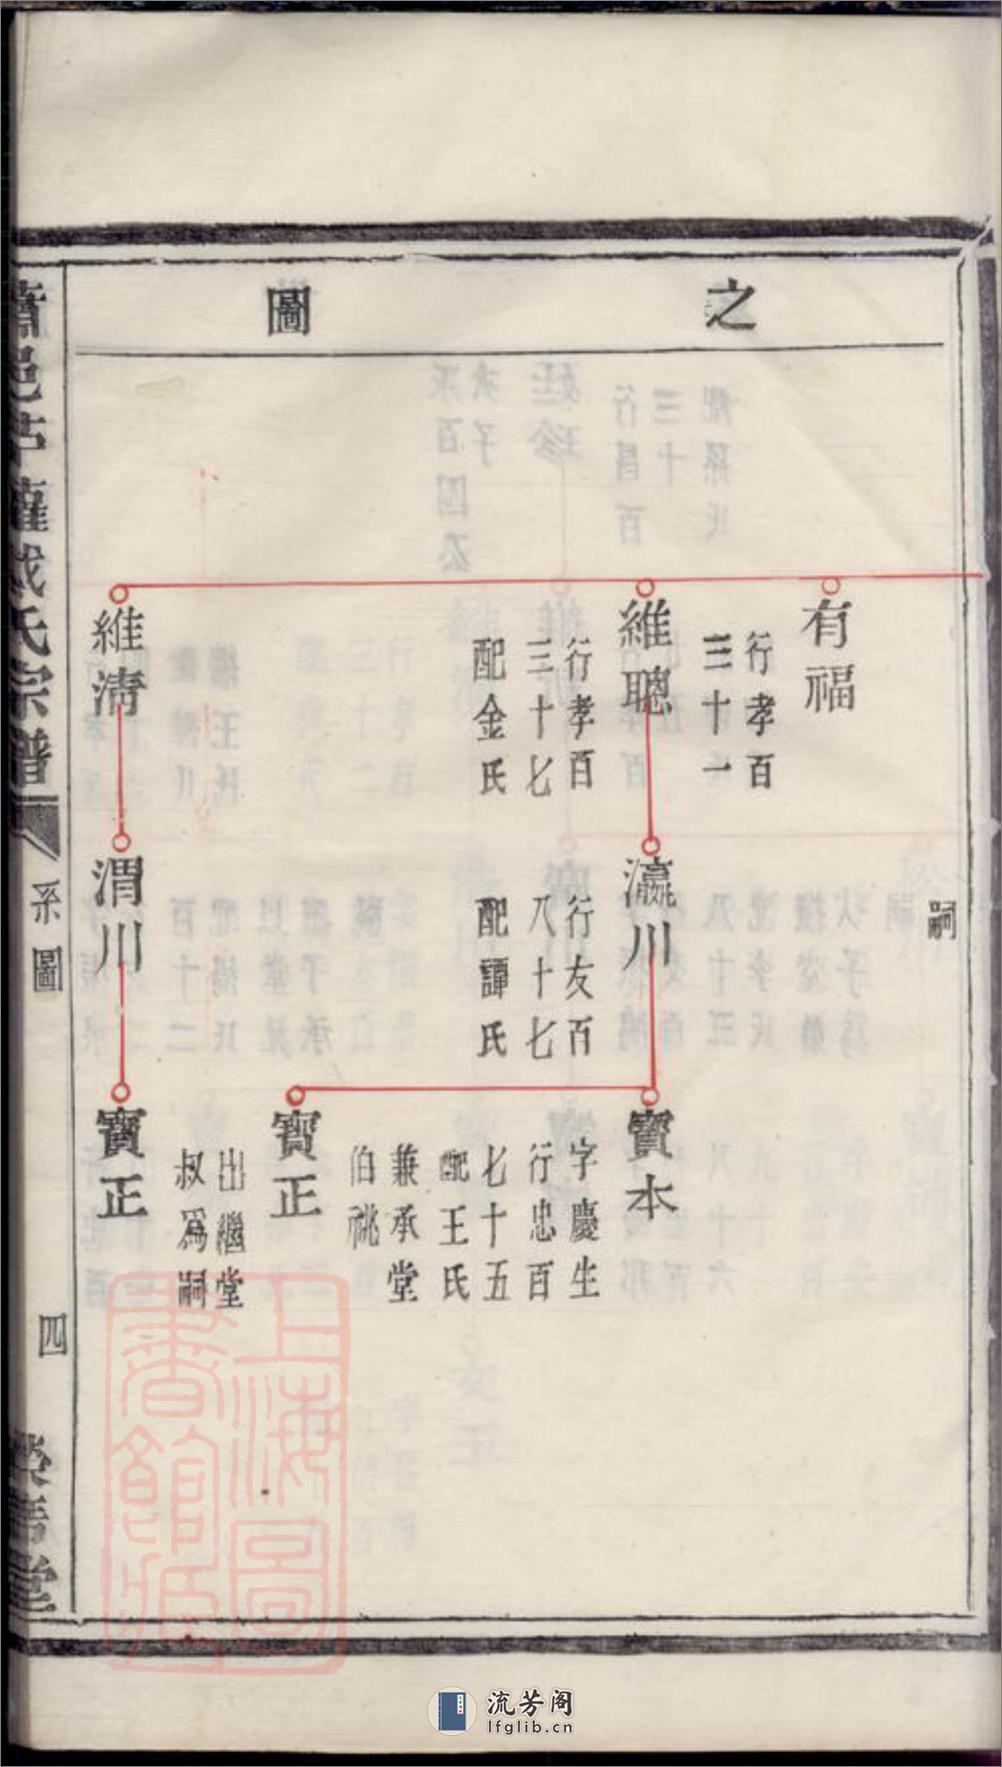 之
圖
嗣
有福
行孝百
三十一
維聰
行孝百
三十七
配金氏
瀛川
行友百
八十七
配譚氏
寶本
字慶生
行忠百
七十五
配王氏
兼承堂
伯祧
寶正
出繼堂
叔爲嗣
維清
渭川
寶正
氏宗譜
系圖
四
上海圖
書館藏
流芳阁
lfglib.cn